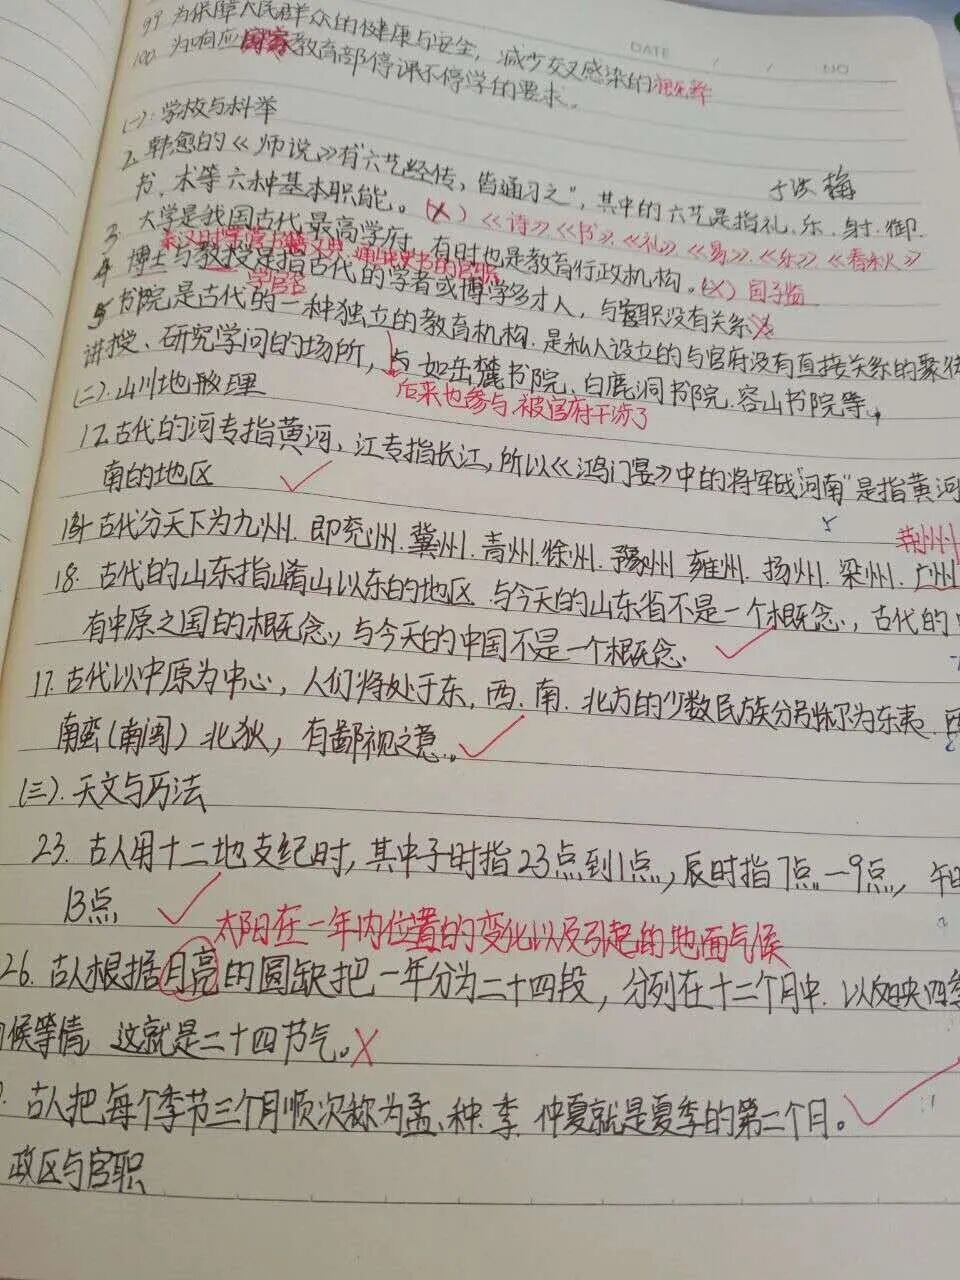 99. 为保障人民群众的健康与安全, 减少交叉感染的概率
DATE / / NO
100. 为响应国家教育部停课不停学的要求。
(一). 学校与科举
于洪梅
2. 韩愈的《师说》有“六艺经传, 皆通习之”, 其中的六艺是指礼、乐、射、御、
书、术等六种基本职能。(X)《诗》《书》《礼》《易》《乐》《春秋》
3. 大学是我国古代最高学府, 有时也是教育行政机构。(X) 国子监
4. 博士与教授是指古代的学者或博学多才人, 与官职没有关系X
学官名
5. 书院是古代的一种独立的教育机构. 是私人设立的与官府没有直接关系的聚徒
讲授、研究学问的场所, 如岳麓书院、白鹿洞书院、容山书院等。
后来也参与, 被官府干涉了
(二). 山川地理
12. 古代的河专指黄河, 江专指长江, 所以《鸿门宴》中的将军战“河南”是指黄河
南的地区
古代分天下为九州. 即兖州. 冀州. 青州. 徐州. 豫州 雍州. 扬州. 梁州. 广州
荆州
18. 古代的山东指崤山以东的地区 与今天的山东省不是一个概念, 古代的
有中原之国的概念, 与今天的中国不是一个概念.
17. 古代以中原为中心, 人们将处于东, 西. 南. 北方的少数民族分别称为东夷.
南蛮(南闽) 北狄, 有鄙视之意。
(三). 天文与历法
23. 古人用十二地支纪时, 其中子时指23点到1点, 辰时指7点—9点, 午
13点
太阳在一年内位置的变化以及引起的地面气候
26. 古人根据月亮的圆缺把一年分为二十四段, 分列在十二个月中. 以反映四季
候等情, 这就是二十四节气。X
古人把每个季节三个月顺次称为孟、种. 季. 仲夏就是夏季的第二个月。
政区与官职